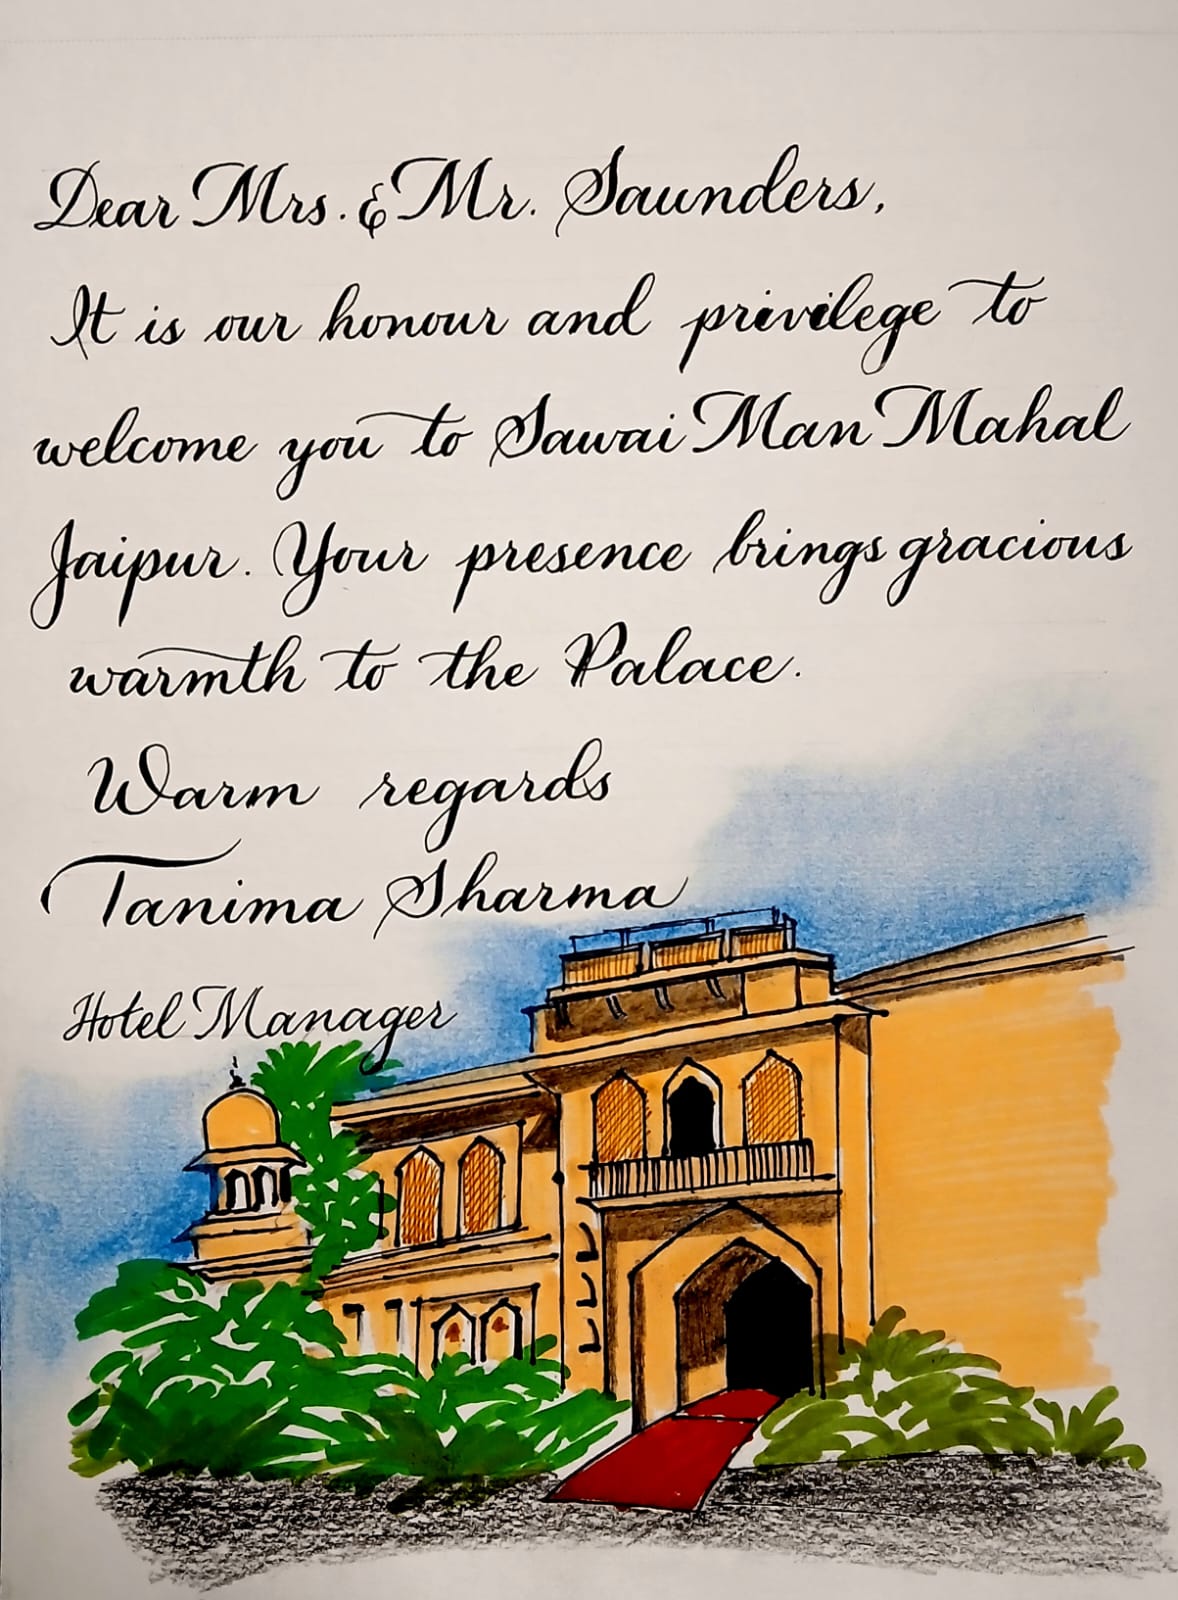 Dear Mrs. & Mr. Saunders,
It is our honour and privilege to
welcome you to Sawai Man Mahal
Jaipur. Your presence brings gracious
warmth to the Palace.
Warm regards
Tanima Sharma
Hotel Manager